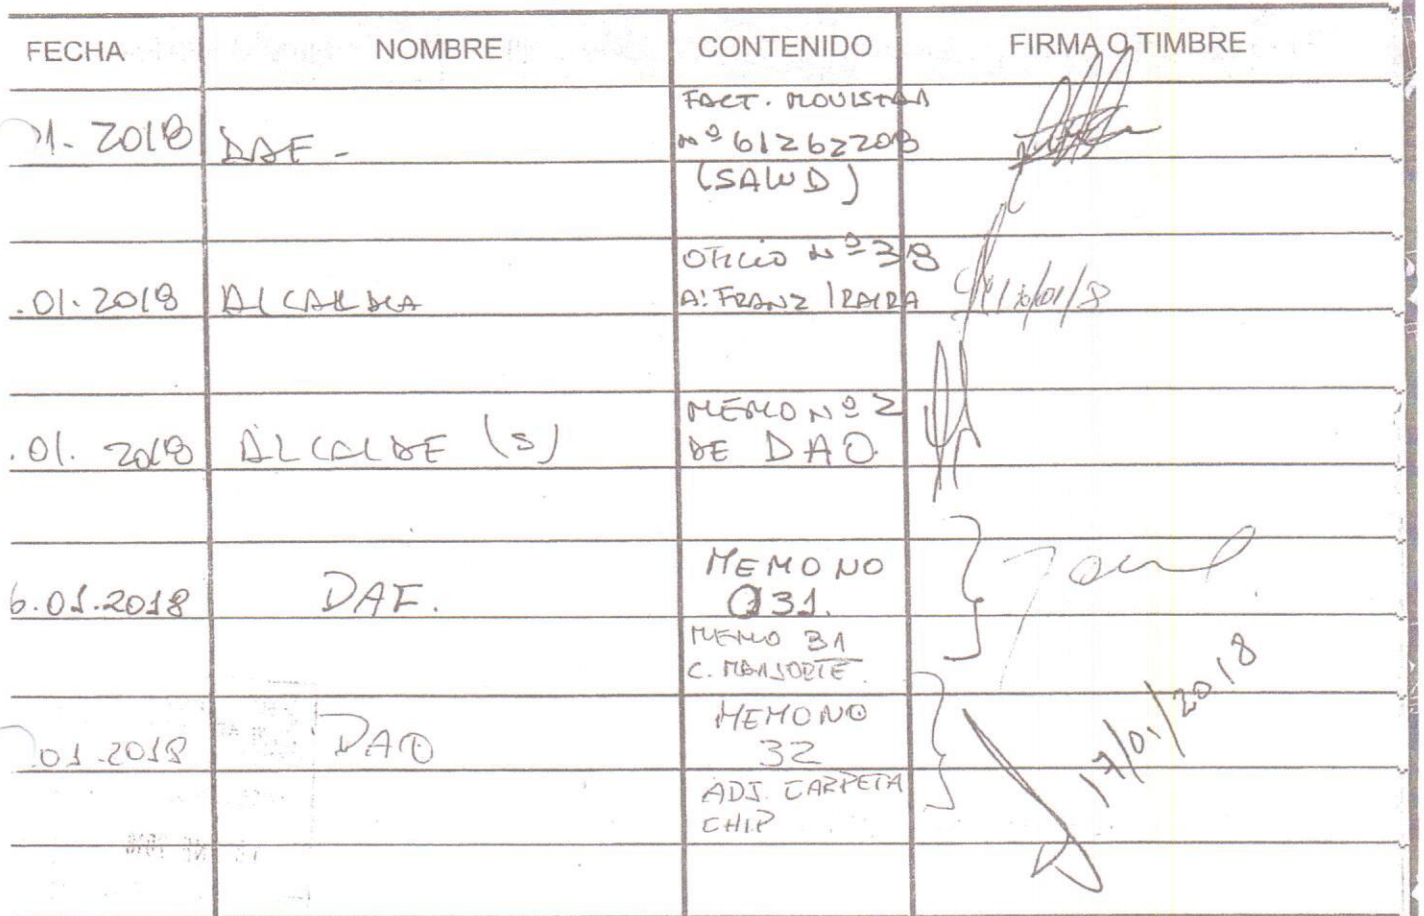 FECHA NOMBRE CONTENIDO FIRMA O TIMBRE
01.2018 DAF - FACT. MOVISTAR
Nº 61262208
(SALUD)
.01.2018 ALCALDIA OFICIO Nº 318
A: FRANZ 16/01/8
.01.2018 ALCALDE (S) MEMO Nº 2
DE DAO
6.01.2018 DAF. MEMO NO
031.
MEMO 31
C.
01.2018 DAO MEMO NO
32
17/01/2018
ADJ. CARPETA
CHIP